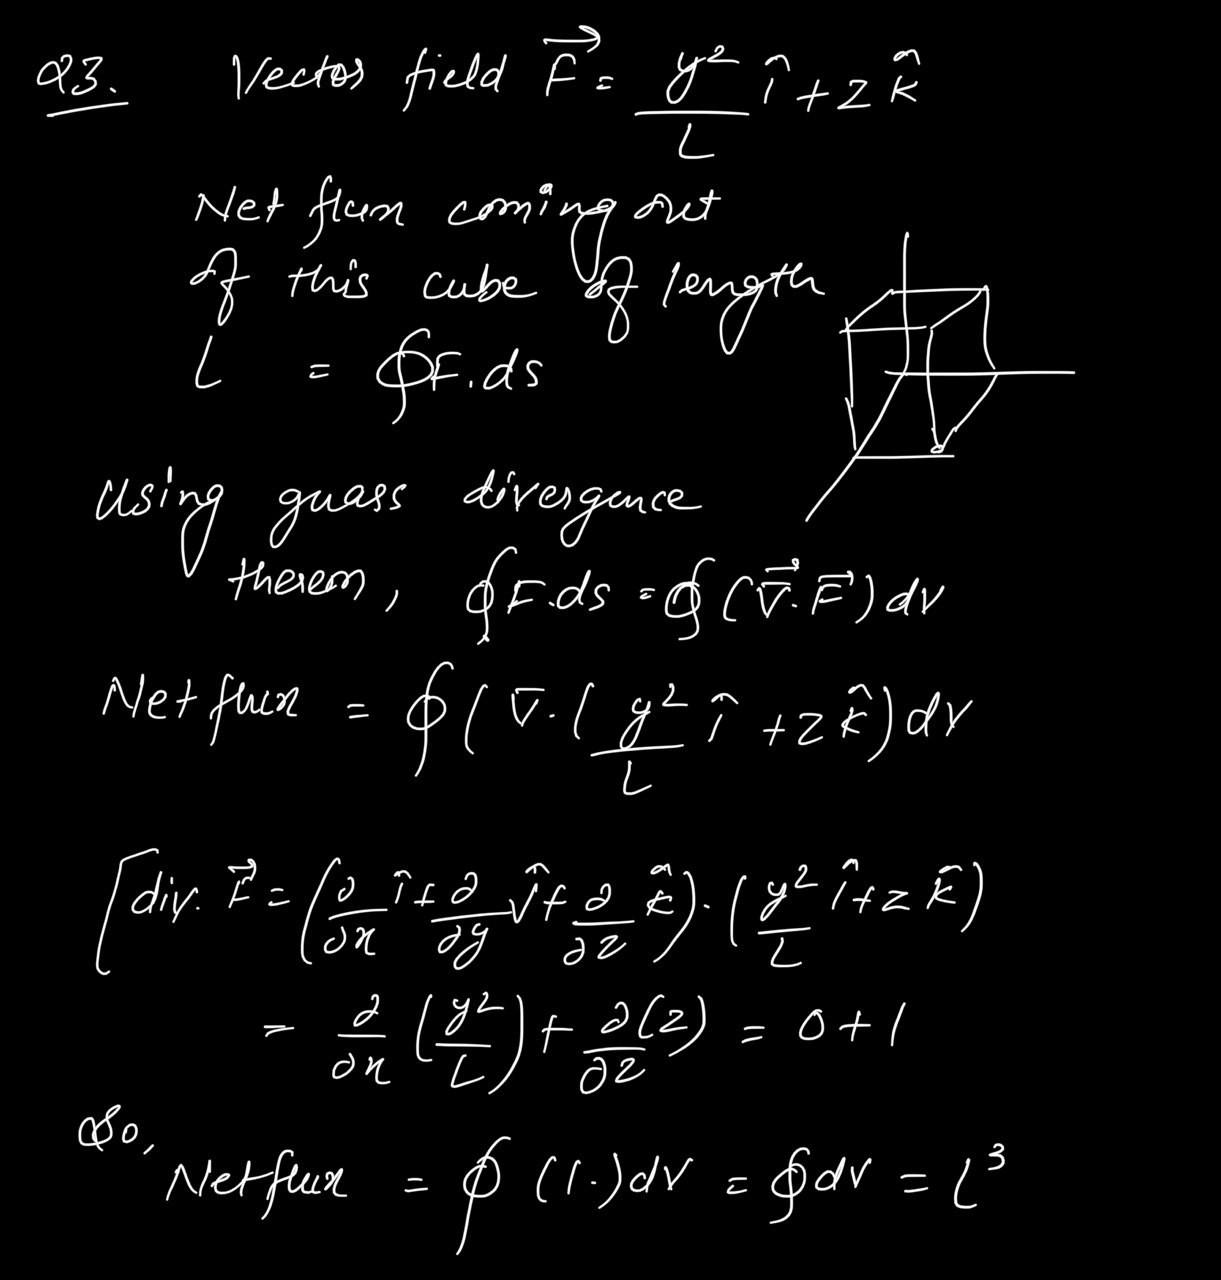 Q3. Vector field F⃗ = y²/L î + z k̂
Net flux coming out
of this cube of length
L = ∮F.ds
Using guass divergence
therem, ∮F.ds = ∮(∇⃗.F⃗)dv
Net flux = ∮(∇.(y²/L î + z k̂)dv
[div. F⃗ = (∂/∂x î + ∂/∂y ĵ + ∂/∂z k̂).(y²/L î + z k̂)
= ∂/∂x (y²/L) + ∂(z)/∂z = 0 + 1
So,
Net flux = ∮(1.)dv = ∮dv = L³